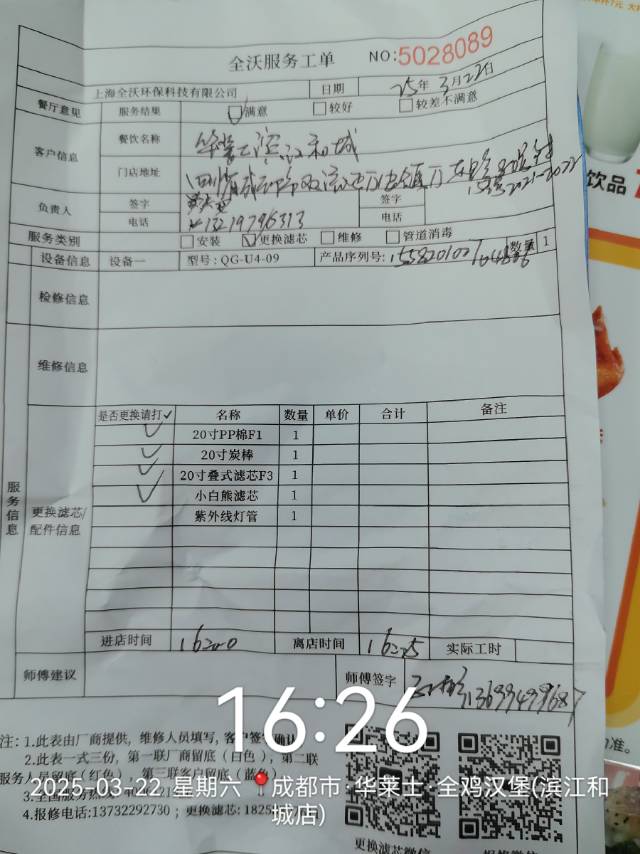 全沃服务工单 NO:5028089
上海全沃环保科技有限公司 日期 25年3月22日
餐厅意见 服务结果 满意 较好 较差不满意
客户信息 餐饮名称 华莱士滨江和城
门店地址
负责人 签字 签字
电话 13219796313 电话
服务类别 安装 更换滤芯 维修 管道消毒
设备信息 设备一 型号:QG-U4-09 产品序列号: 数量 1
检修信息
维修信息
服务信息
更换滤芯/配件信息
是否更换请打✓ 名称 数量 单价 合计 备注
✓ 20寸PP棉F1 1
✓ 20寸炭棒 1
✓ 20寸叠式滤芯F3 1
✓ 小白熊滤芯 1
紫外线灯管 1
进店时间 离店时间 实际工时
师傅建议 师傅签字 13699499687
16:26
注：1.此表由厂商提供，维修人员填写，客户签字确认
2.此表一式三份，第一联厂商留底（白色），第二联
服务人员留底（红色），第三联客户留底（蓝色）
2025-03-22 星期六 成都市·华莱士·全鸡汉堡(滨江和
城店)
4.报修电话:13732292730；更换滤芯:1825
更换滤芯微信 报修微信
饮品